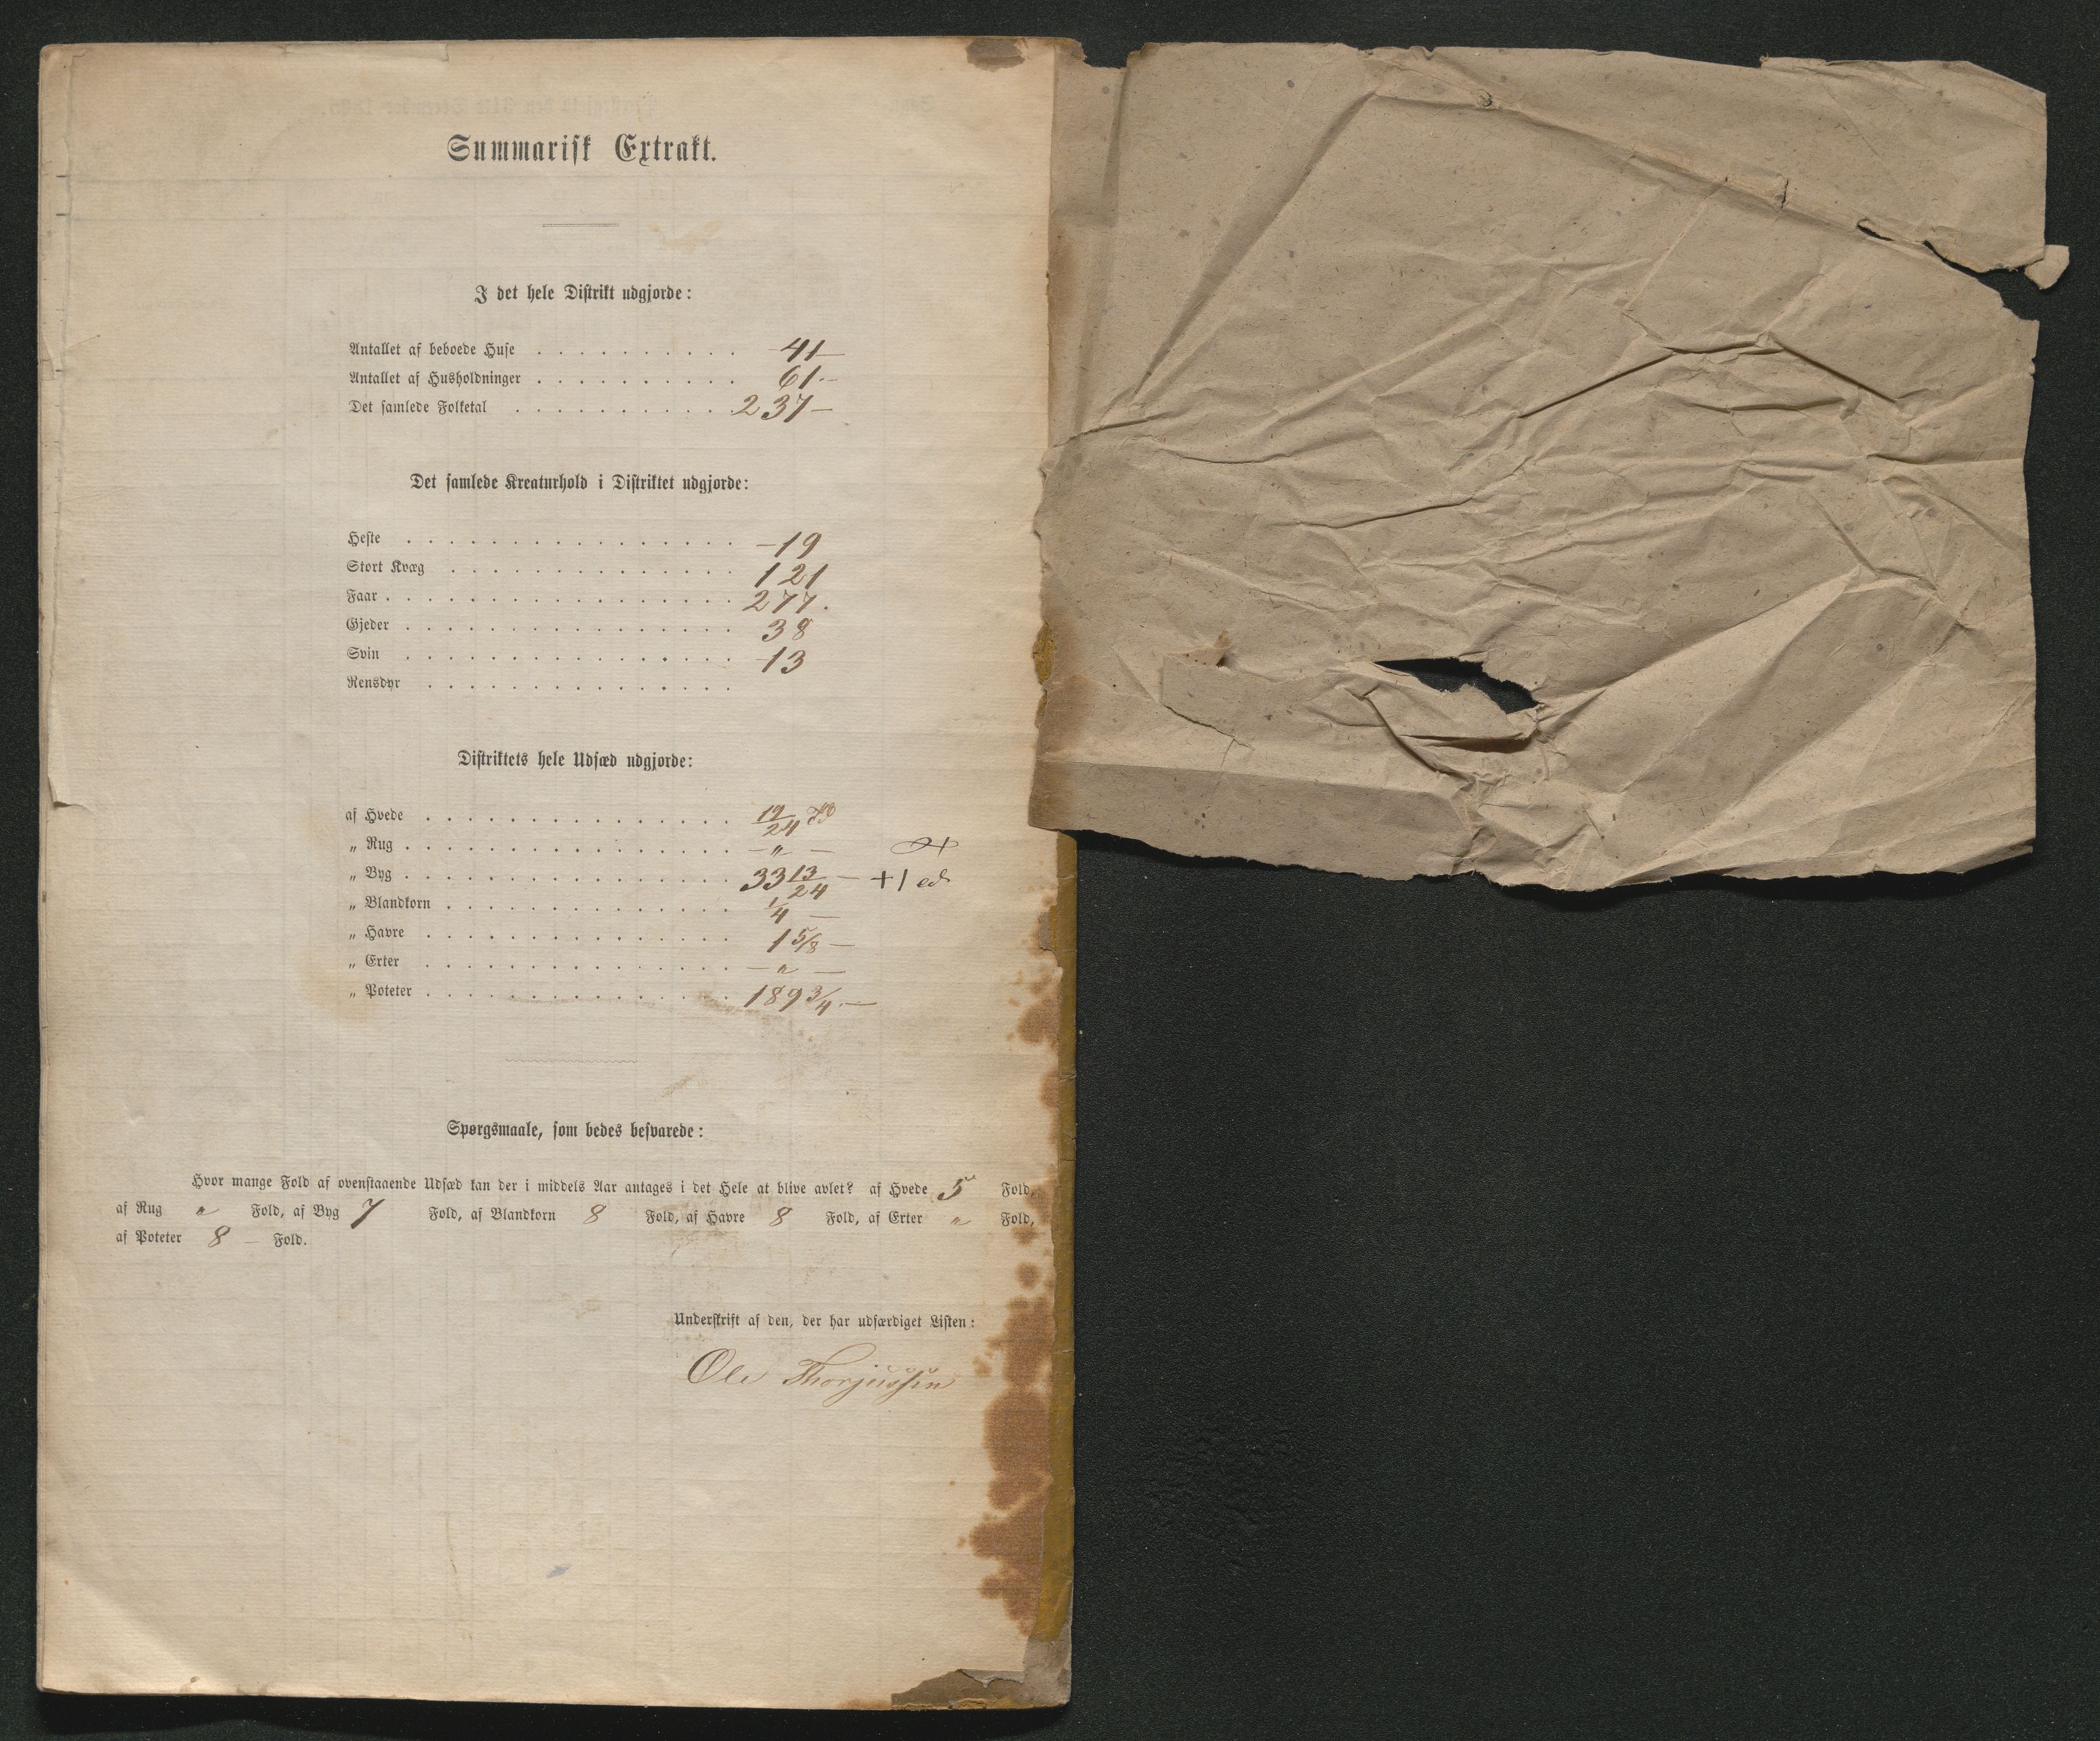 Summarisk Extrakt.
I det hele Distrikt udgjorde:
Antallet af beboede Huse . . . . . . . . . . 41 —
Antallet af Husholdninger . . . . . . . . . . 61. —
Det samlede Folketal . . . . . . . . . . . 237 —
Det samlede Kreaturhold i Distriktet udgjorde:
Heste . . . . . . . . . . . . . . . . — 19
Stort Kvæg . . . . . . . . . . . . . . 121
Faar . . . . . . . . . . . . . . . . . 277.
Gjeder . . . . . . . . . . . . . . . . 38
Svin . . . . . . . . . . . . . . . . 13
Rensdyr . . . . . . . . . . . . . . .
Distriktets hele Udsæd udgjorde:
af Hvede . . . . . . . . . . . . . . . 19/24
„ Rug . . . . . . . . . . . . . . . . — „ —
„ Byg . . . . . . . . . . . . . . . . 33 13/24 — +1
„ Blandkorn . . . . . . . . . . . . . . 1/4 —
„ Havre . . . . . . . . . . . . . . . 1 5/8 —
„ Erter . . . . . . . . . . . . . . . — „ —
„ Poteter . . . . . . . . . . . . . . . 189 3/4. —
Spørgsmaale, som bedes besvarede:
Hvor mange Fold af ovenstaaende Udsæd kan der i middels Aar antages i det Hele at blive avlet? af Hvede 5 Fold,
af Rug „ Fold, af Byg 7 Fold, af Blandkorn 8 Fold, af Havre 8 Fold, af Erter „ Fold,
af Poteter 8 — Fold.
Underskrift af den, der har udfærdiget Listen:
Ole Thorjussen